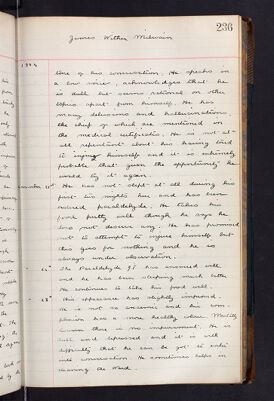 236
James Wither Milwain
1904
tone of his conversation. He speaks in
a low voice, acknowledges that he
is dull but seems rational on other
topics apart from himself. He has
many delusions and hallucinations,
the chief of which are mentioned in
the medical certificates. He is not at
all repentant about his having tried
to injure himself and it is extremely
probable that given the opportunity he
would try it again.
11th. He has not slept at all during his
first two nights here and has been
paraldehyde. He takes his
food pretty well though he says he
does not desire any. He has promised
not to attempt to injure himself but
this goes for nothing and he is
always under observation.
The Paraldehyde has answered well
and he has been sleeping much better.
He continues to take his food well.
His appearance has slightly improved.
He is not so and his com-
plexion has a more healthy colour. Mentally
however there is no improvement. He is
dull and depressed and it is with
difficulty that he can be got to enter
into conversation. He sometimes helps in
cleaning the ward.